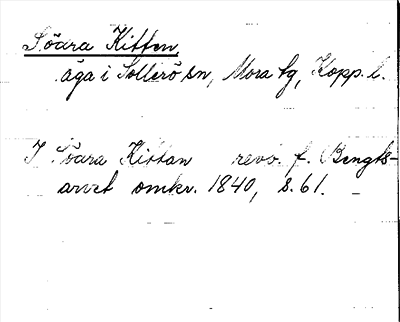 Söära Kitten,
äga i Sollerö sn, Mora tg, Kopp. l.
I Söära Kittan revs. f. Bengts-
arvet omkr. 1840, s. 61.